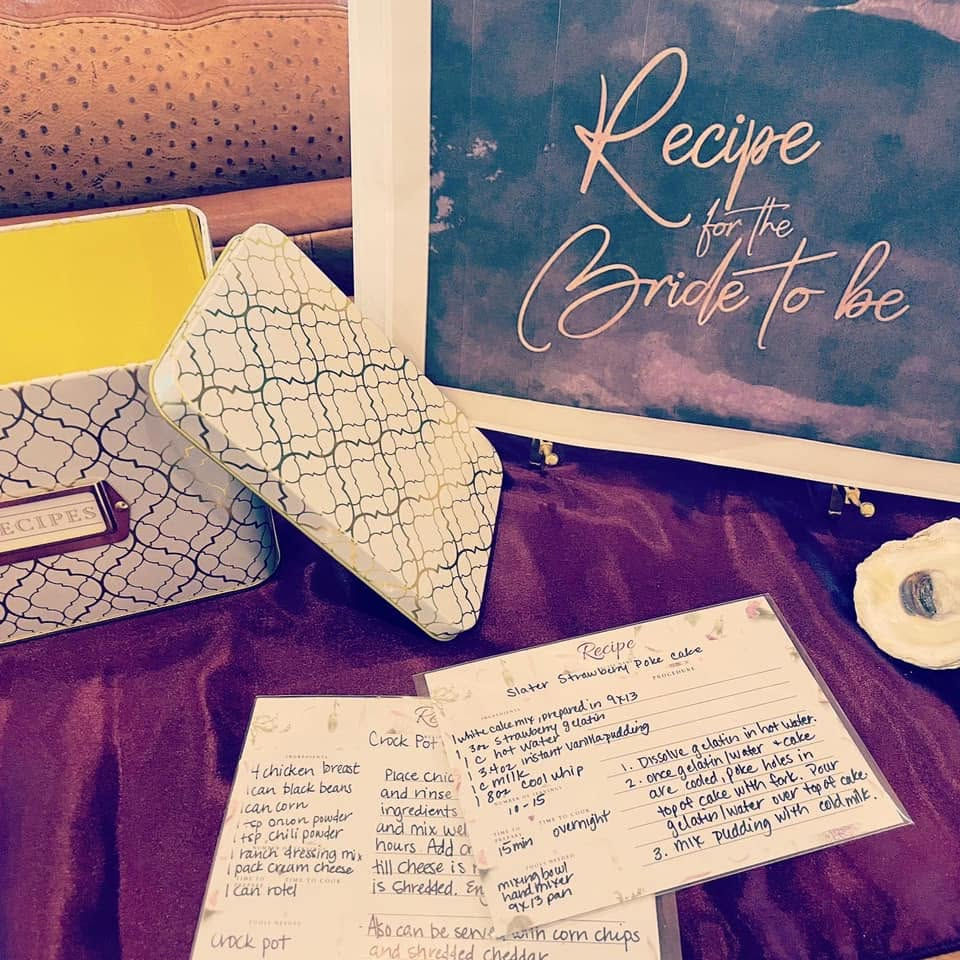 Recipe
for the
Bride to be
RECIPES
Recipe
Slater Strawberry Poke cake
PROCEDURE
INGREDIENTS
1 white cake mix, prepared in 9x13
1 3oz strawberry gelatin
1 c hot water
1 3.4oz instant vanilla pudding
1 c milk
1 8oz cool whip
NUMBER OF SERVINGS
10-15
TIME TO PREPARE
TIME TO COOK
15 min
overnight
TOOLS NEEDED
mixing bowl
hand mixer
9x13 pan
1. Dissolve gelatin in hot water.
2. once gelatin/water + cake
are cooled, poke holes in
top of cake with fork. Pour
gelatin/water over top of cake.
3. mix pudding with cold milk.
Crock Pot
INGREDIENTS
4 chicken breast
1 can black beans
1 can corn
1 tsp onion powder
1 tsp chili powder
1 ranch dressing mix
1 pack cream cheese
TIME TO
TIME TO COOK
1 can rotel
TOOLS NEEDED
crock pot
Place
and rinse
ingredients
and mix
hours. Add
till cheese is
is shredded.
- Also can be with corn chips
and shredded cheddar